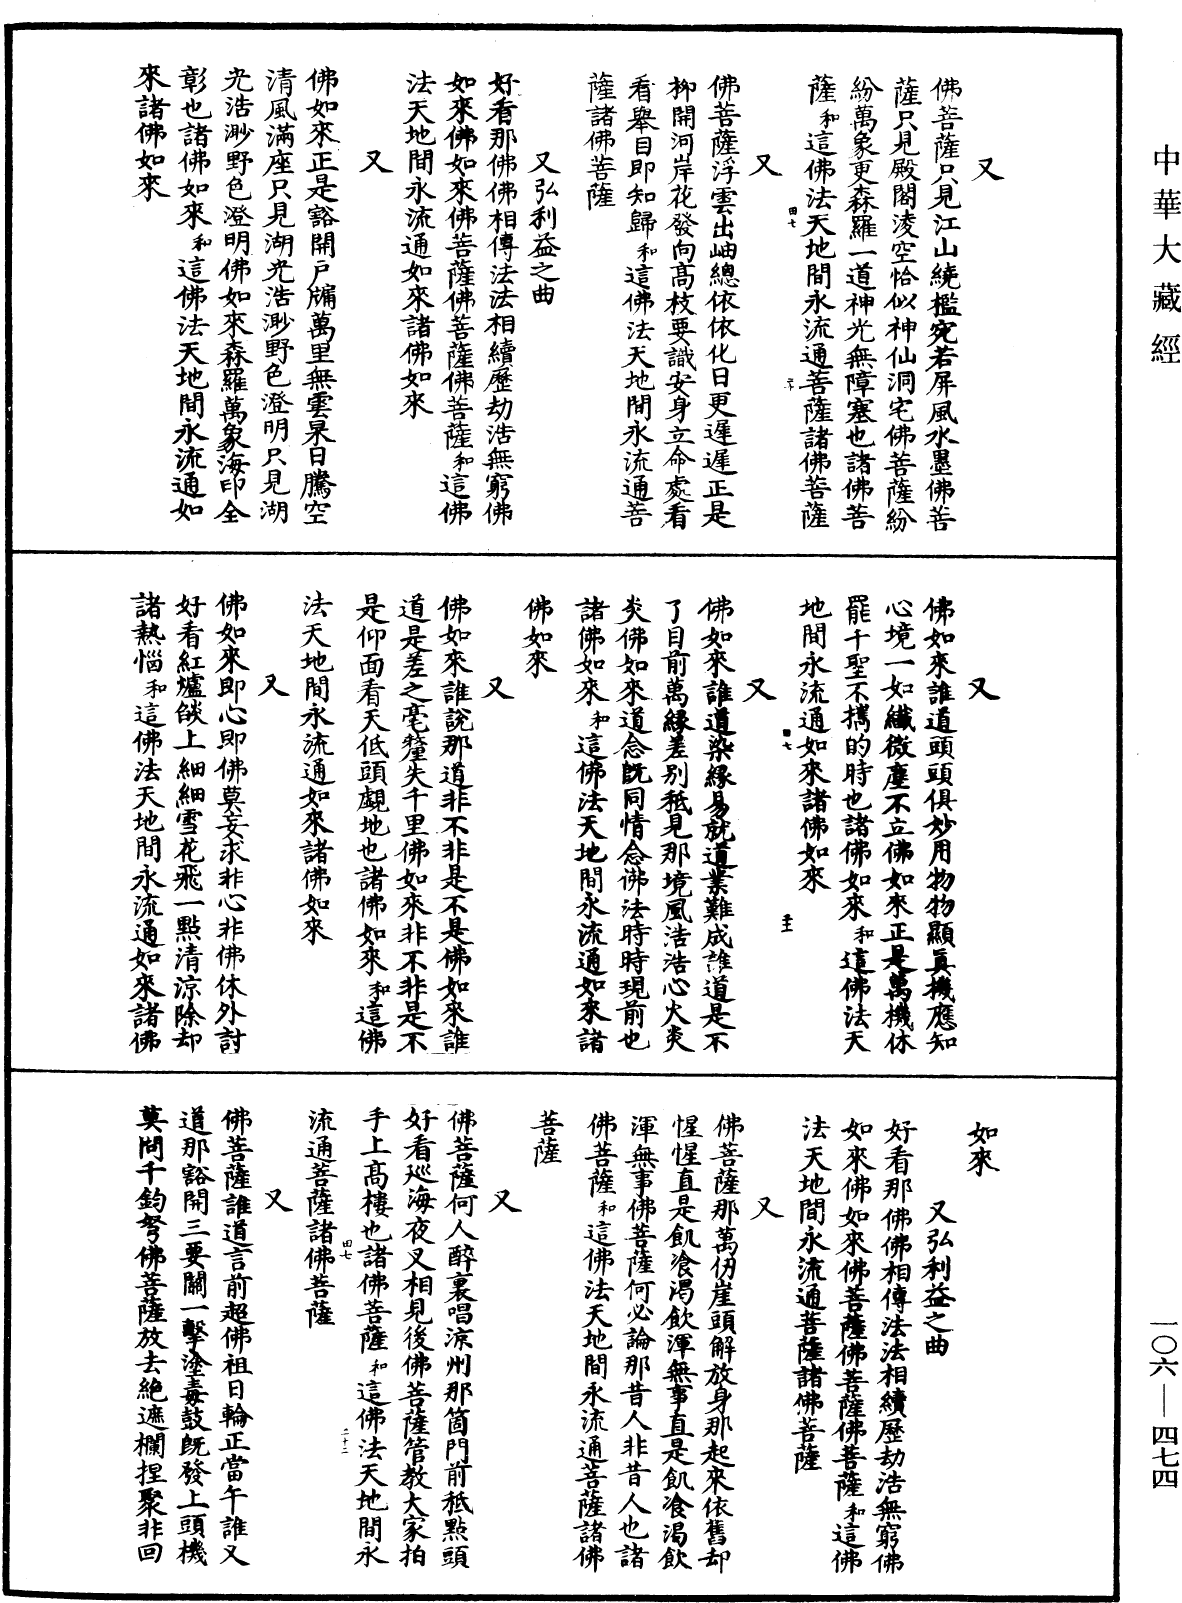 中華大藏經
又
佛菩薩只見江山繞檻宛若屏風水墨佛菩
薩只見殿閣淩空恰似神仙洞宅佛菩薩紛
紛萬象更森羅一道神光無障塞也諸佛菩
薩和這佛法天地間永流通菩薩諸佛菩薩
又
佛菩薩浮雲出岫總依依化日更遲遲正是
柳開河岸花發向高枝要識安身立命處看
看舉目即知歸和這佛法天地間永流通菩
薩諸佛菩薩
又弘利益之曲
好看那佛佛相傳法法相續歷劫浩無窮佛
如來佛如來佛菩薩佛菩薩佛菩薩和這佛
法天地間永流通如來諸佛如來
又
佛如來正是豁開戶牖萬里無雲杲日騰空
清風滿座只見湖光浩渺野色澄明只見湖
光浩渺野色澄明佛如來森羅萬象海印全
彰也諸佛如來和這佛法天地間永流通如
來諸佛如來
又
佛如來誰道頭頭俱妙用物物顯真機應知
心境一如纖微塵不立佛如來正是萬機休
罷千聖不攜的時也諸佛如來和這佛法天
地間永流通如來諸佛如來
又
佛如來誰道染緣易就道業難成誰道是不
了目前萬緣差別秪見那境風浩浩心火炎
炎佛如來道念既同情念佛法時時現前也
諸佛如來和這佛法天地間永流通如來諸
佛如來
又
佛如來誰說那道非不非是不是佛如來誰
道是差之毫釐失千里佛如來非不非是不
是仰面看天低頭覷地也諸佛如來和這佛
法天地間永流通如來諸佛如來
又
佛如來即心即佛莫妄求非心非佛休外討
好看紅爐燄上細細雪花飛一點清涼除却
諸熱惱和這佛法天地間永流通如來諸佛
如來
又弘利益之曲
好看那佛佛相傳法法相續歷劫浩無窮佛
如來佛如來佛菩薩佛菩薩佛菩薩和這佛
法天地間永流通菩薩諸佛菩薩
又
佛菩薩那萬仞崖頭解放身那起來依舊却
惺惺直是飢飡渴飲渾無事直是飢飡渴飲
渾無事佛菩薩何必論那昔人非昔人也諸
佛菩薩和這佛法天地間永流通菩薩諸佛
菩薩
又
佛菩薩何人醉裏唱涼州那箇門前秪點頭
好看廵海夜叉相見後佛菩薩管教大家拍
手上高樓也諸佛菩薩和這佛法天地間永
流通菩薩諸佛菩薩
又
佛菩薩誰道言前超佛祖日輪正當午誰又
道那豁開三要關一擊塗毒鼓既發上頭機
莫問千鈞弩佛菩薩放去絶遮欄捏聚非回
一〇六—四七四